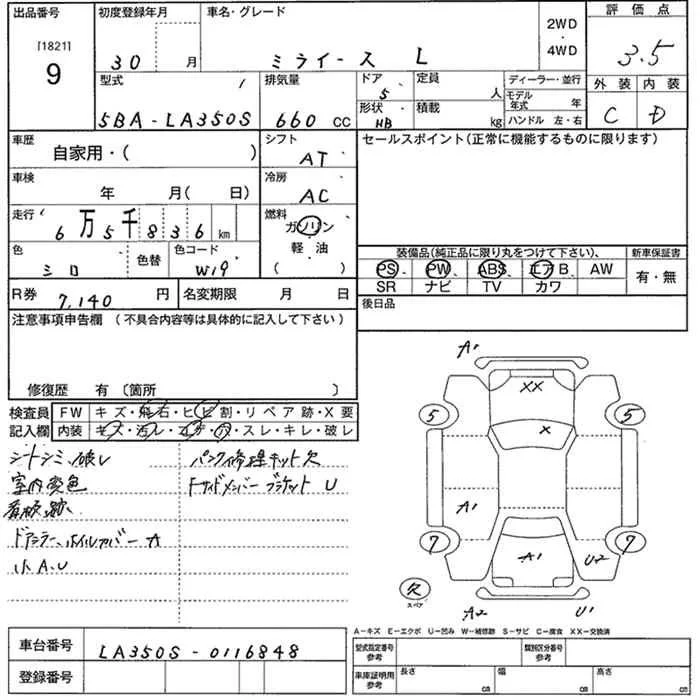 出品番号
[1821]
9
初度登録年月
30 月
車名・グレード
ミライース L
2WD
・
4WD
評価点
3.5
型式
5BA-LA350S
排気量
660 CC
ドア
5
形状
HB
定員 人
積載 kg
ディーラー・並行
モデル年式 年
ハンドル 左・右
外装 内装
C D
車歴
自家用・( )
シフト
AT
セールスポイント(正常に機能するものに限ります)
車検
年 月( 日)
冷房
AC
走行
6万5千836km
燃料
ガソリン
・
軽油
( )
色
シロ
色替
色コード
W19
装備品(純正品に限り丸をつけて下さい)、
新車保証書
PS PW ABS エアB AW
SR ナビ TV カワ
有・無
R券 7,140 円
名変期限 月 日
後日品
注意事項申告欄 (不具合内容等は具体的に記入して下さい)
修復歴 有 〔箇所 〕
検査員
記入欄
FW キズ・飛石・ヒビ割・リペア跡・X要
内装 キズ・汚レ・コゲ・穴・スレ・キレ・破レ
シートシミ、破レ
室内変色
看板跡
ドアミラー、ホイルカバー A
小A、U
パンク修理キット欠
Fサイドメンバーブラケット U
A1
XX
5
5
X
A1
7
7
A1
U2
欠
スペア
A2
U1
A-キズ E-エクボ U-凹み W-補修跡 S-サビ C-腐食 XX-交換済
車台番号
LA350S-0116848
登録番号
型式指定番号
参考
類別区分番号
参考
車庫証明用
参考
長さ cm
幅 cm
高さ cm